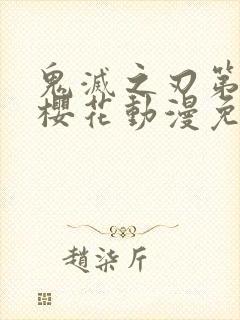 鬼滅之刃第
櫻花動漫免
趙柒斤